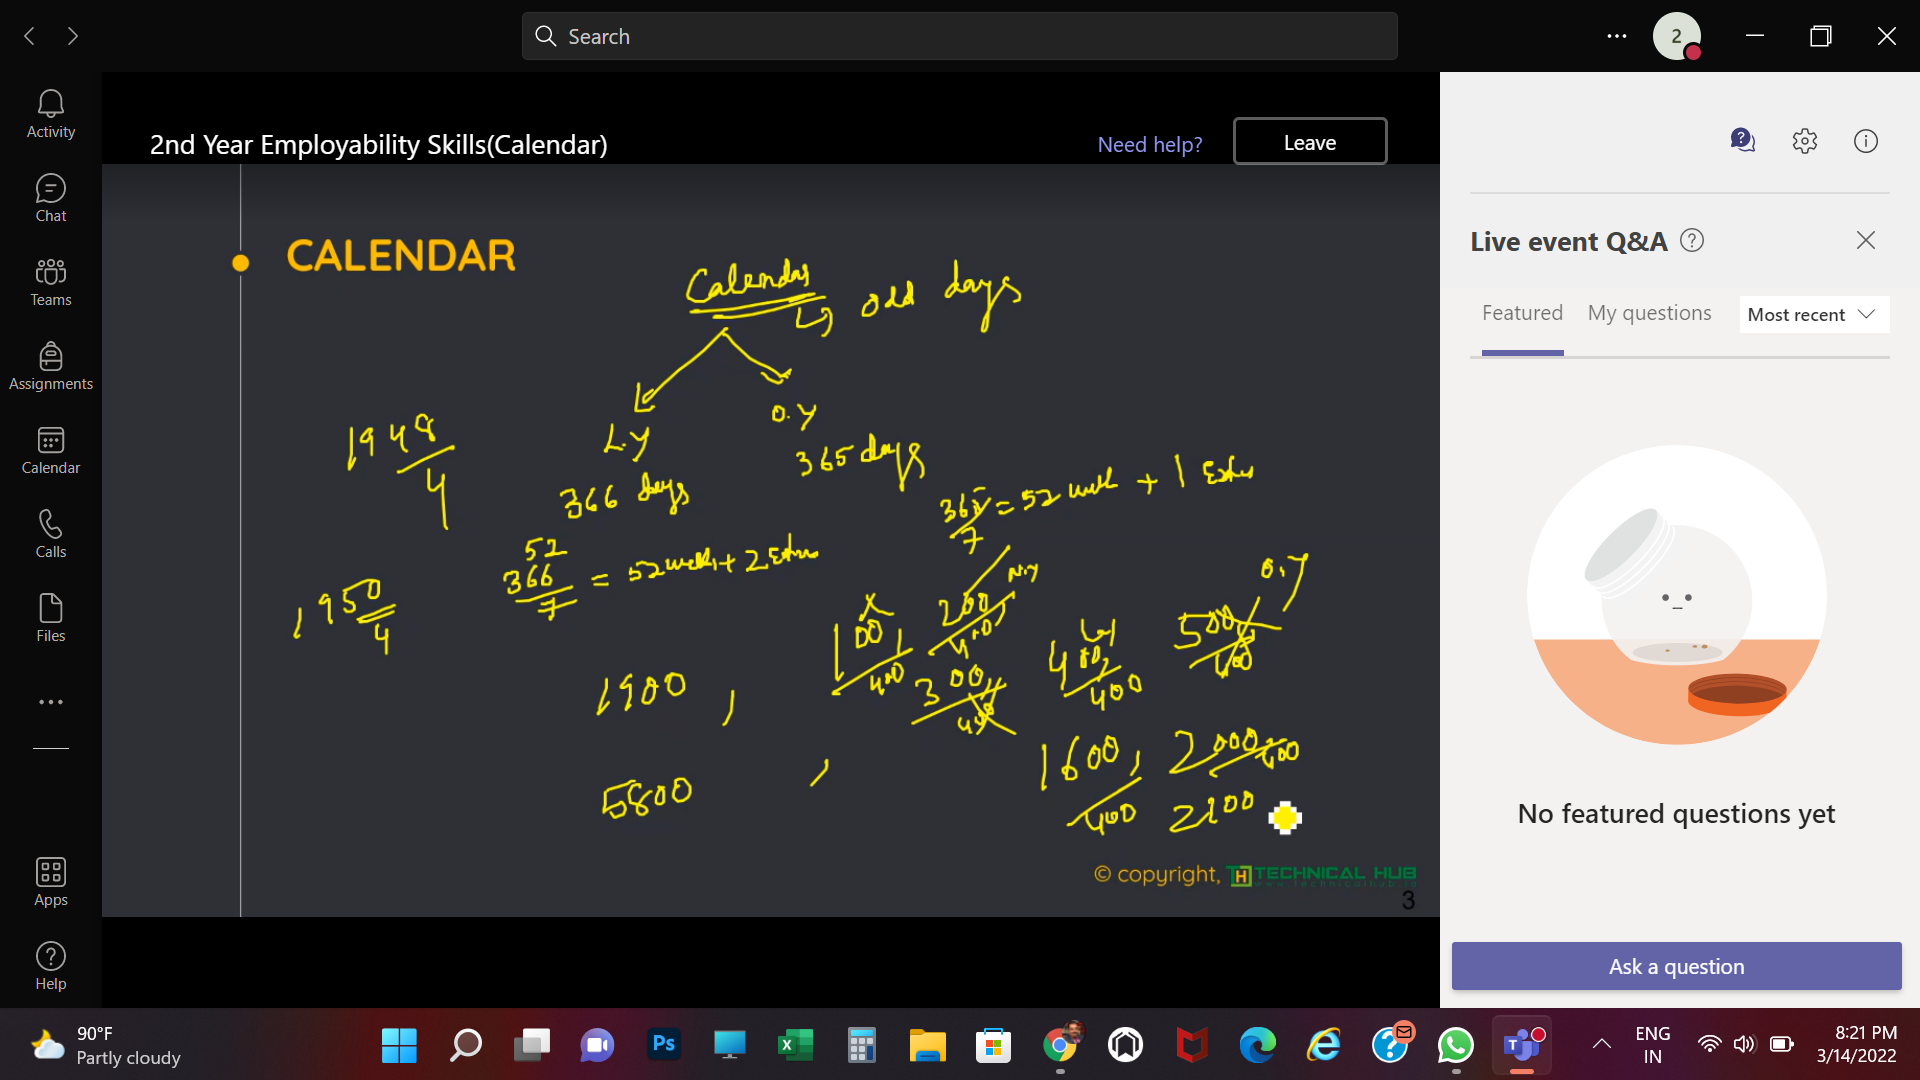 Search
2
Activity
Chat
Teams
Assignments
Calendar
Calls
Files
Apps
Help
2nd Year Employability Skills(Calendar)
Need help?
Leave
CALENDAR
Calendar
odd days
L.Y
O.Y
366 days
365 days
1948
4
365/7 = 52 week + 1 Extra
52
366/7 = 52 week + 2 Extra
1950
4
N.Y
O.Y
100,
400
200
400
300
400
400,
400
500
400
1900,
1600,
400
2000
400
5800
,
2100
© copyright, TH TECHNICAL HUB
www.technicalhub.io
3
Live event Q&A
Featured
My questions
Most recent
No featured questions yet
Ask a question
90°F
Partly cloudy
Ps
ENG
IN
8:21 PM
3/14/2022